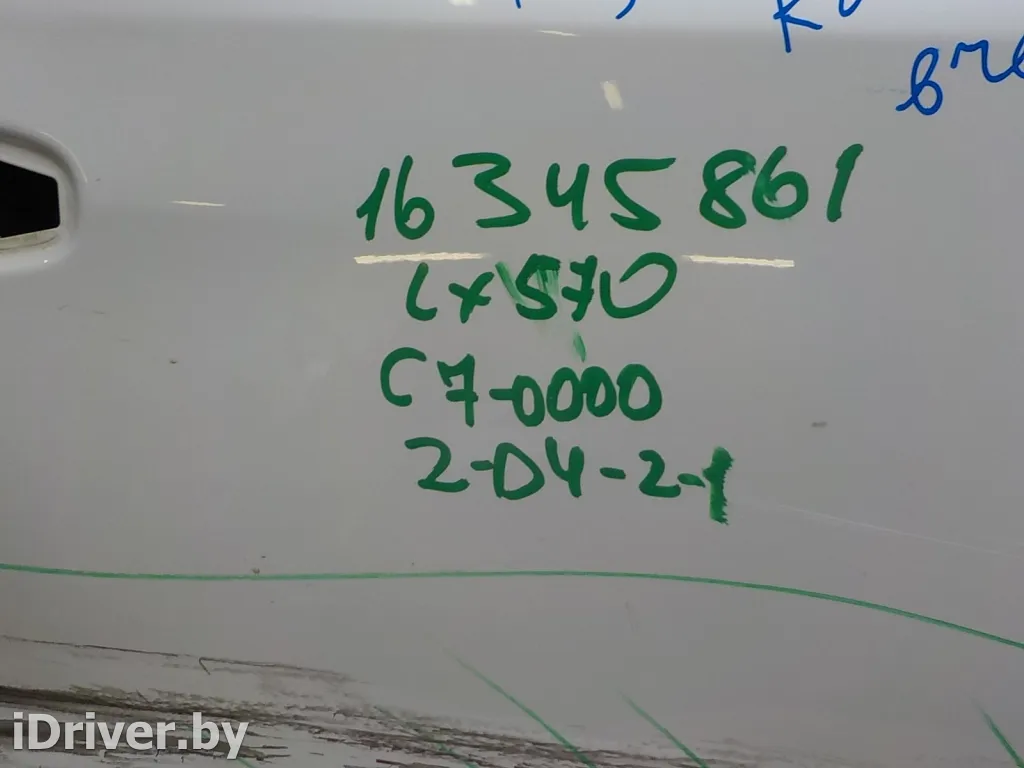 16345861
Lx570
C7-0000
2-D4-2-1
iDriver.by